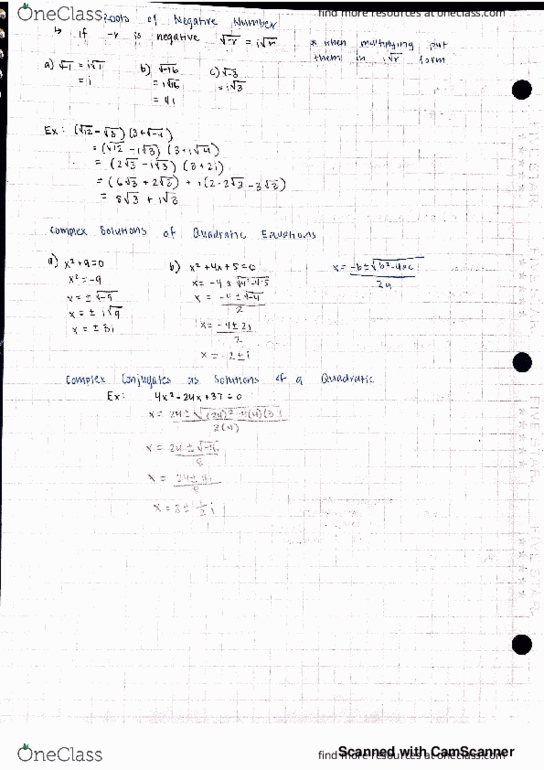 OneClass
find more resources at oneclass.com
Roots of Negative Number
↳ if -r is negative √-r = i√r
* when multiplying put them in i√r form
a) √-1 = i√1
= i
b) √-16
= i√16
= 4i
c) √-3
= i√3
Ex: (√12 - √-3)(3+√-4)
= (√12 - i√3)(3+i√4)
= (2√3 - i√3)(3+2i)
= (6√3 + 2√3) + i(2·2√3 - 3√3)
= 8√3 + i√3
Complex Solutions of Quadratic Equations
a) x²+9=0
x² = -9
x = ±√-9
x = ± i√9
x = ± 3i
b) x²+4x+5=0
x = -4 ± √4²-4·5
x = -4 ± √-4 / 2
x = -4 ± 2i / 2
x = -2 ± i
x = -b ± √b²-4ac / 2a
Complex Conjugates as Solutions of a Quadratic
Ex: 4x²-24x+37=0
x = 24 ± √(24)² - 4(4)(37) / 2(4)
x = 24 ± √-16 / 8
x = 24 ± 4i / 8
x = 3 ± 1/2 i
FIVE STAR
FIVE STAR
FIVE STAR
OneClass
find more resources at oneclass.com
Scanned with CamScanner